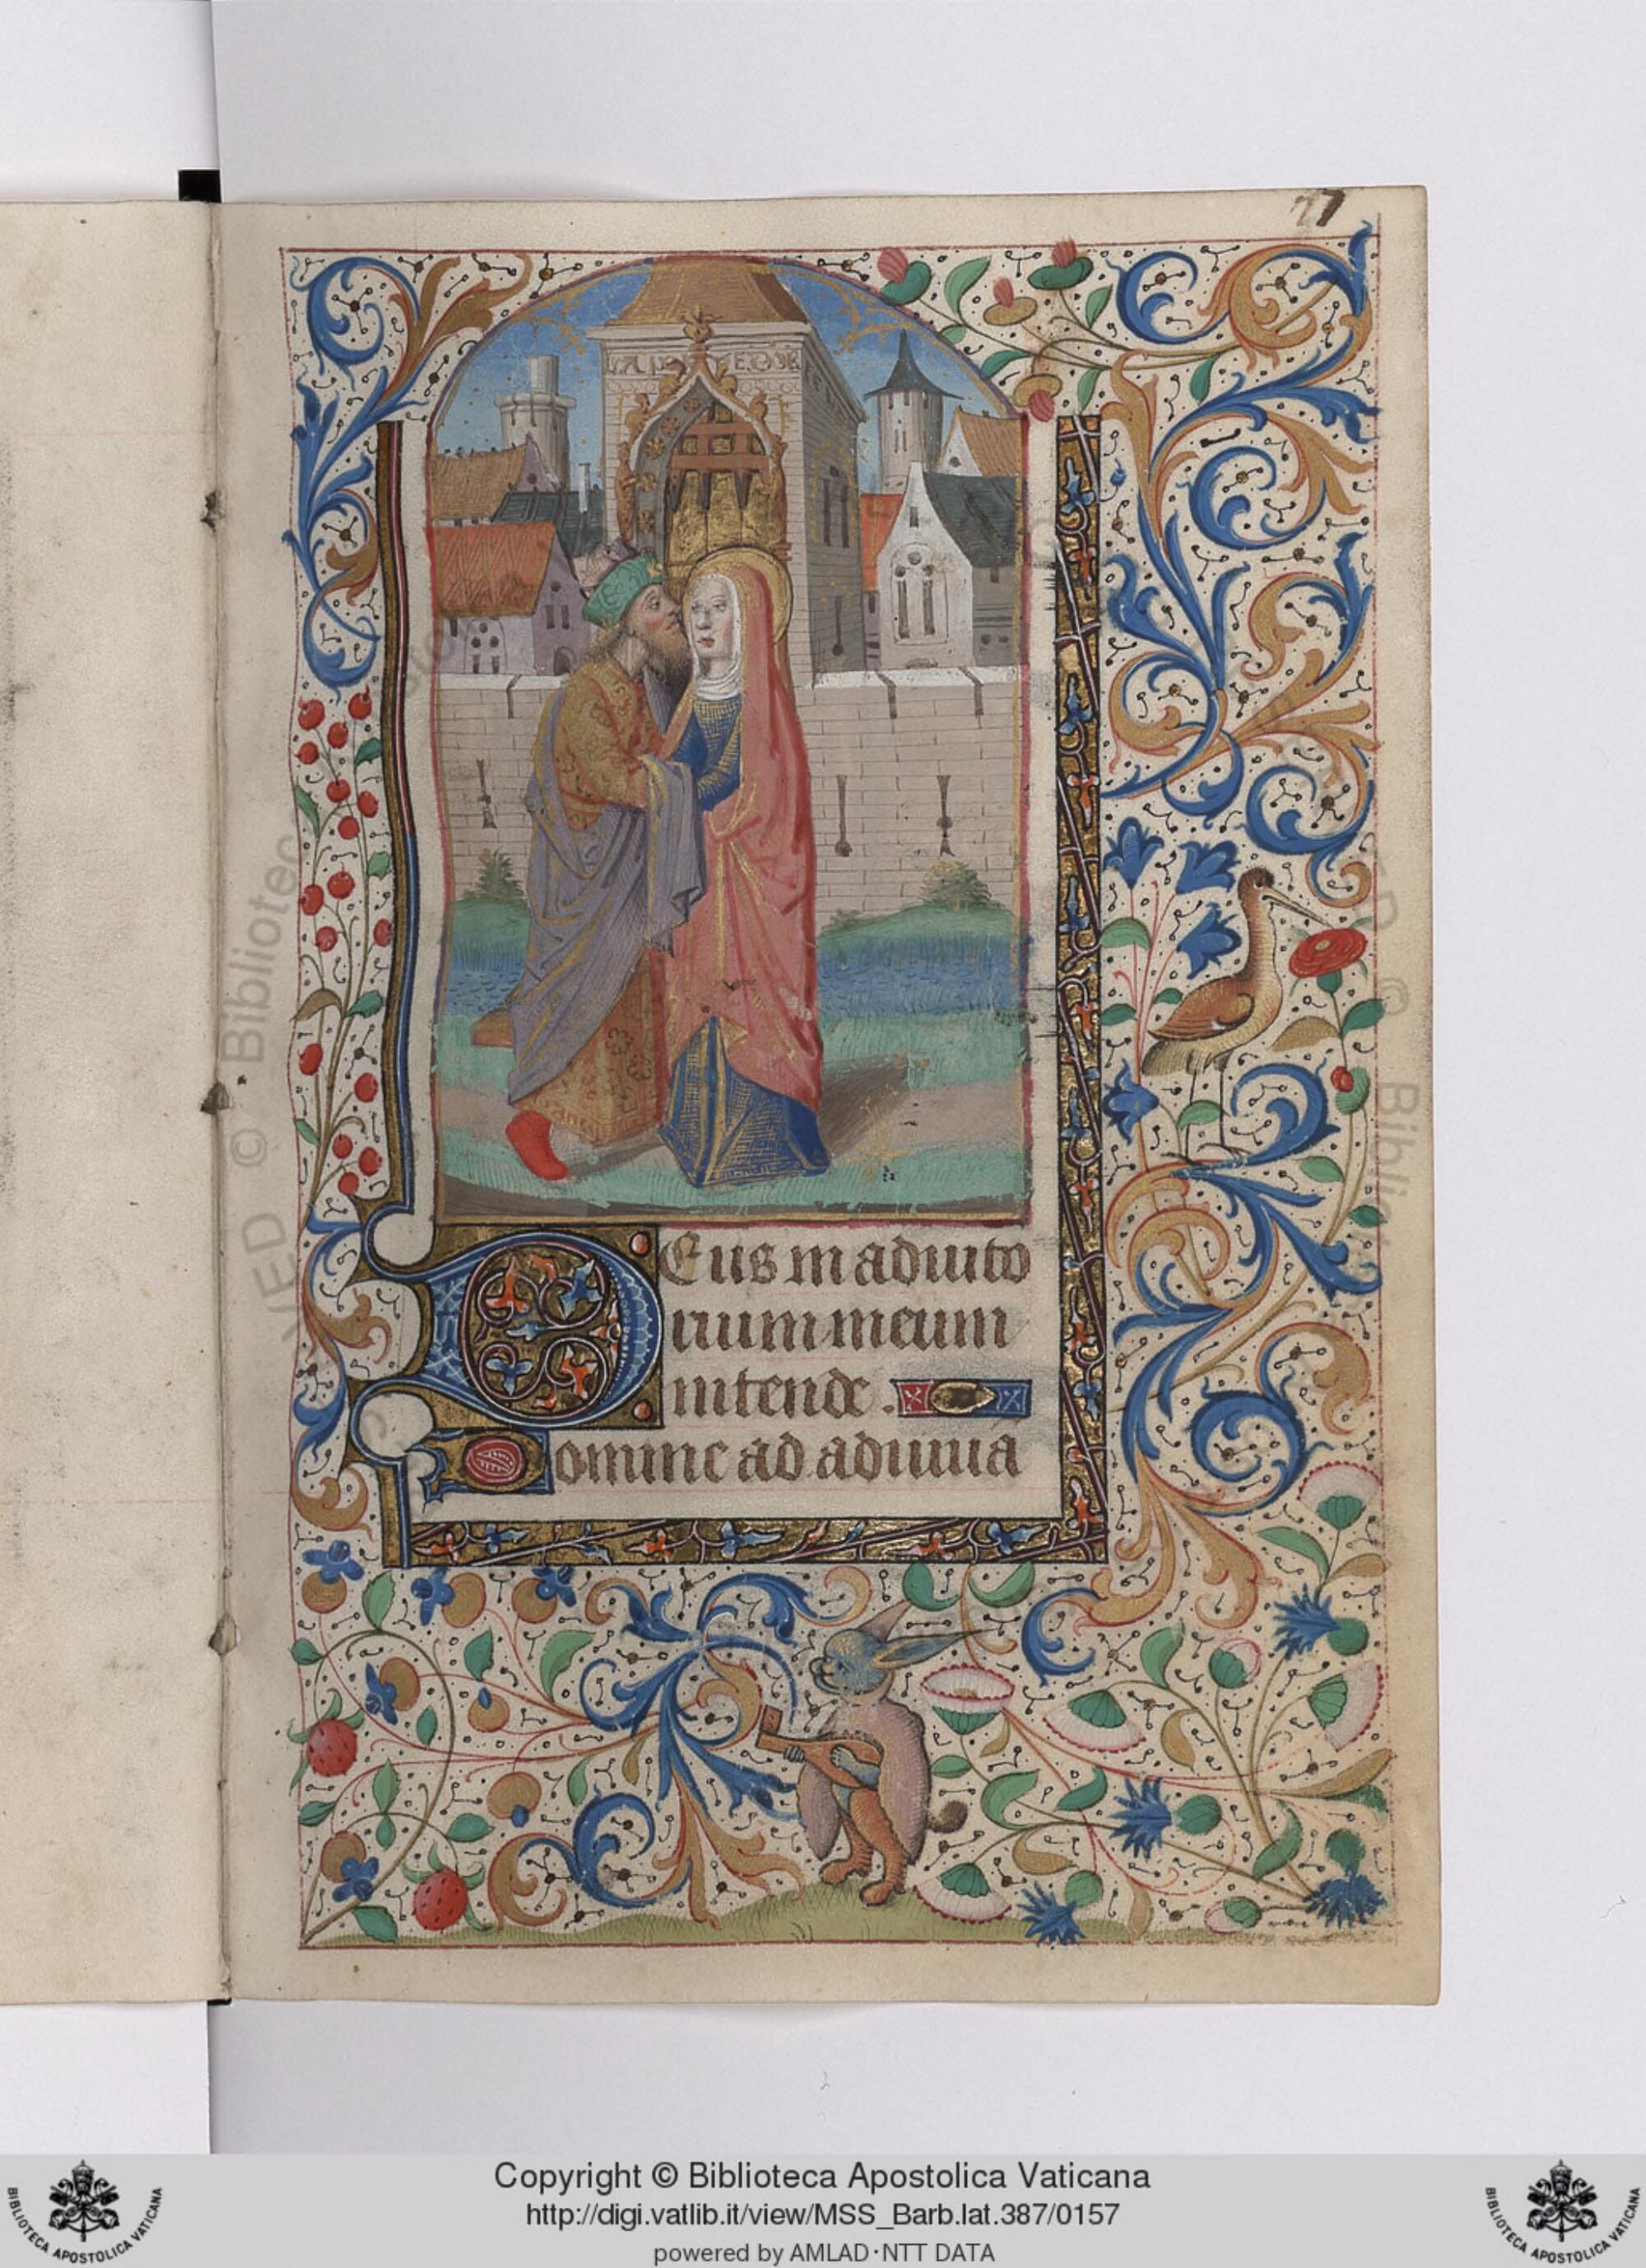 77
Deus in adiuto
rium meum
intende.
Domine ad adiuuā
Copyright © Biblioteca Apostolica Vaticana
http://digi.vatlib.it/view/MSS_Barb.lat.387/0157
powered by AMLAD·NTT DATA
BIBLIOTECA APOSTOLICA VATICANA
BIBLIOTECA APOSTOLICA VATICANA